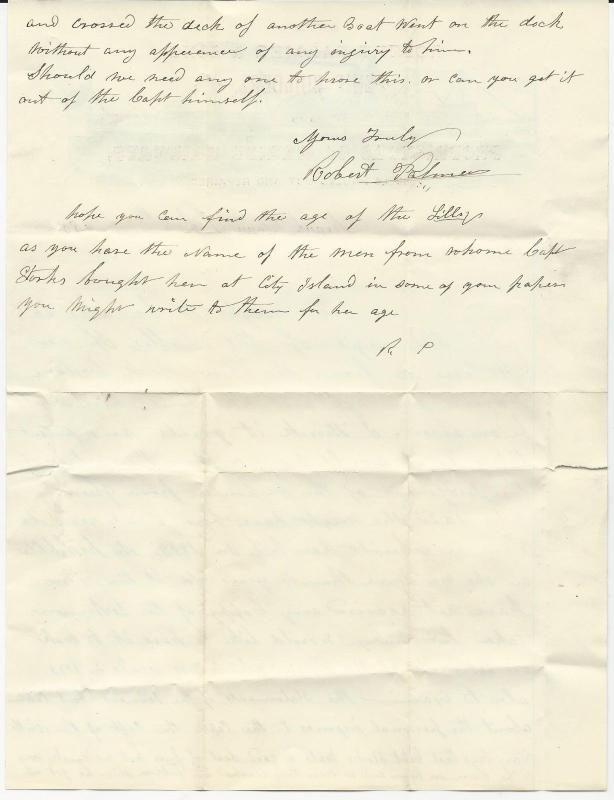 and crossed the deck of another Boat went on the dock
without any apperence of any ingiry to him.
Should we need any one to prove this. or can you get it
out of the Capt himself.
Yours Truly
Robert Palmer
hope you can find the age of the Lilly
as you have the Name of the men from whome Capt
bought her at City Island in some of your papers
you Might write to them for her age
R P